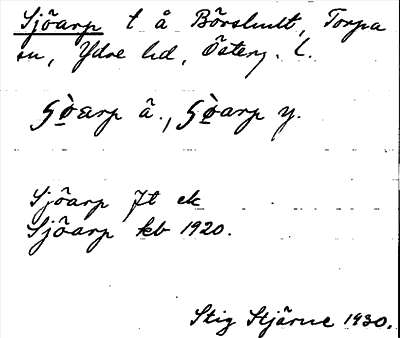 Sjöarp t å Börshult, Torpa
sn, Ydre hd, Österg. l.
ʂò̱arp ä., ʂò̱arp y.
Sjöarp Jt ek
Sjöarp kb 1920.
Stig Stjärne 1930.